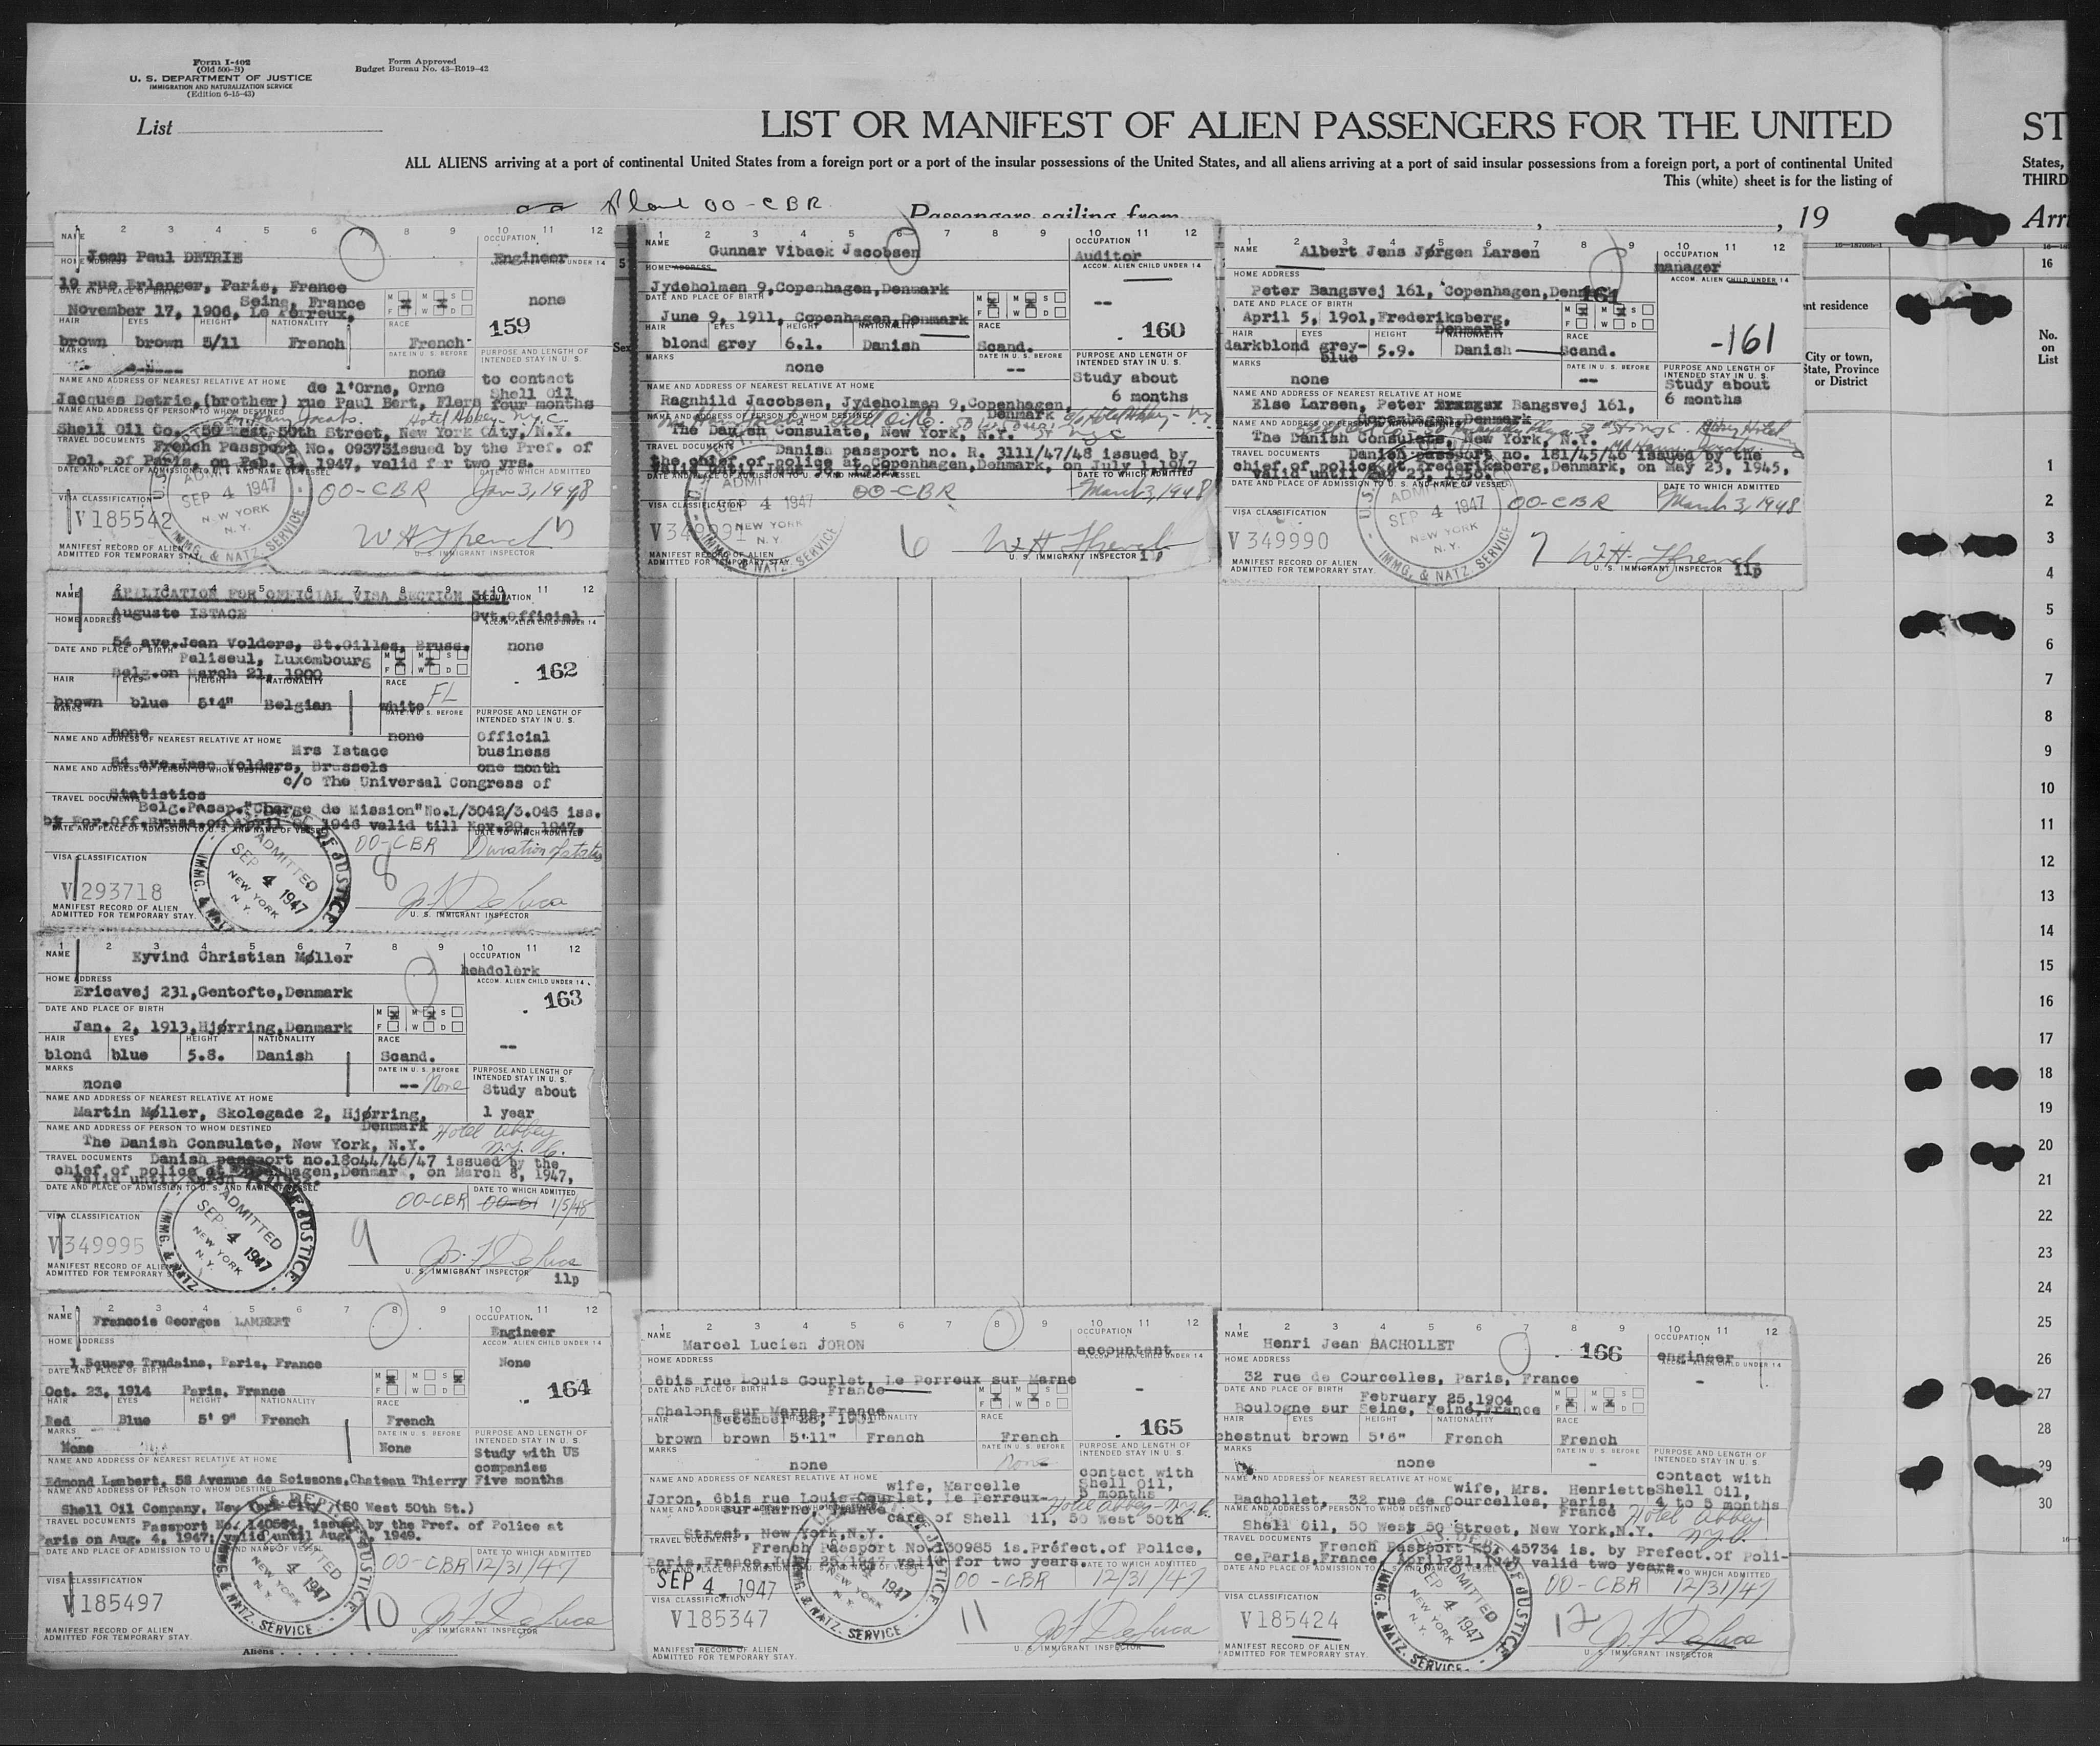 Form I-402
(Old 500-B)
U. S. DEPARTMENT OF JUSTICE
IMMIGRATION AND NATURALIZATION SERVICE
(Edition 6-15-43)
Form Approved
Budget Bureau No. 43-R019-42
List
LIST OR MANIFEST OF ALIEN PASSENGERS FOR THE UNITED
ST
ALL ALIENS arriving at a port of continental United States from a foreign port or a port of the insular possessions of the United States, and all aliens arriving at a port of said insular possessions from a foreign port, a port of continental United
States,
This (white) sheet is for the listing of
THIRD
OO-CBR
Passengers sailing from
, 19
Arri
1 2 3 4 5 6 7 8 9 10 11 12
NAME
Jean Paul DETRIE
OCCUPATION
Engineer
HOME ADDRESS
19 rue Erlanger, Paris, France
DATE AND PLACE OF BIRTH
Seine, France
November 17, 1906, Le Perreux,
none
159
HAIR EYES HEIGHT NATIONALITY RACE
brown brown 5/11 French French
MARKS
DATE IN U. S. BEFORE
none
PURPOSE AND LENGTH OF INTENDED STAY IN U. S.
to contact
Shell Oil
four months
NAME AND ADDRESS OF NEAREST RELATIVE AT HOME
de l'Orne, Orne
Jacques Detrie, (brother) rue Paul Bert, Flers
NAME AND ADDRESS OF PERSON TO WHOM DESTINED
Hotel Abbey - N.Y.C.
Shell Oil Co. 50 West 50th Street, New York City, N.Y.
TRAVEL DOCUMENTS
French Passport No. 093731 issued by the Pref. of
Pol. of Paris, on Feb. 3, 1947, valid for two yrs.
DATE AND PLACE OF ADMISSION TO U. S. AND NAME OF VESSEL
DATE TO WHICH ADMITTED
ADMITTED
SEP 4 1947
NEW YORK
N. Y.
IMMG. & NATZ. SERVICE
OO-CBR
Jan 3, 1948
VISA CLASSIFICATION
V185542
MANIFEST RECORD OF ALIEN
ADMITTED FOR TEMPORARY STAY.
U. S. IMMIGRANT INSPECTOR
1 2 3 4 5 6 7 8 9 10 11 12
NAME
Gunnar Vibaek Jacobsen
OCCUPATION
Auditor
HOME ADDRESS
ACCOM. ALIEN CHILD UNDER 14
Jydeholmen 9,Copenhagen,Denmark
DATE AND PLACE OF BIRTH
--
June 9, 1911, Copenhagen,Denmark
160
HAIR EYES HEIGHT NATIONALITY RACE
blond grey 6.1. Danish Scand.
MARKS
none
DATE IN U. S. BEFORE
--
PURPOSE AND LENGTH OF INTENDED STAY IN U. S.
Study about
6 months
NAME AND ADDRESS OF NEAREST RELATIVE AT HOME
Ragnhild Jacobsen, Jydeholmen 9,Copenhagen,
Denmark
NAME AND ADDRESS OF PERSON TO WHOM DESTINED
The Danish Consulate, New York, N.Y.
TRAVEL DOCUMENTS
Danish passport no. R. 3111/47/48 issued by
the chief of police at Copenhagen,Denmark, on July 1, 1947
DATE AND PLACE OF ADMISSION TO U. S. AND NAME OF VESSEL
DATE TO WHICH ADMITTED
SEP 4 1947
NEW YORK
N. Y.
IMMG. & NATZ. SERVICE
OO-CBR
March 3, 1948
VISA CLASSIFICATION
V349991
6
MANIFEST RECORD OF ALIEN
ADMITTED FOR TEMPORARY STAY.
U. S. IMMIGRANT INSPECTOR
1 2 3 4 5 6 7 8 9 10 11 12
NAME
Albert Jens Jørgen Larsen
OCCUPATION
manager
HOME ADDRESS
ACCOM. ALIEN CHILD UNDER 14
Peter Bangsvej 161, Copenhagen,Denmark
161
DATE AND PLACE OF BIRTH
April 5, 19o1,Frederiksberg,
Denmark
-161
HAIR EYES HEIGHT NATIONALITY RACE
darkblond grey-blue 5.9. Danish Scand.
MARKS
none
DATE IN U. S. BEFORE
--
PURPOSE AND LENGTH OF INTENDED STAY IN U. S.
Study about
6 months
NAME AND ADDRESS OF NEAREST RELATIVE AT HOME
Else Larsen, Peter Bangsvej 161,
Copenhagen,Denmark
NAME AND ADDRESS OF PERSON TO WHOM DESTINED
The Danish Consulate, New York, N.Y.
TRAVEL DOCUMENTS
Danish passport no. 181/45/46 issued by the
chief of police at Frederiksberg,Denmark, on May 23, 1945,
valid until May 23, 1950.
DATE AND PLACE OF ADMISSION TO U. S. AND NAME OF VESSEL
DATE TO WHICH ADMITTED
SEP 4 1947
NEW YORK
N. Y.
IMMG. & NATZ. SERVICE
OO-CBR
March 3, 1948
VISA CLASSIFICATION
V349990
7
MANIFEST RECORD OF ALIEN
ADMITTED FOR TEMPORARY STAY.
U. S. IMMIGRANT INSPECTOR
ilp
NAME
APPLICATION FOR OFFICIAL VISA SECTION
OCCUPATION
Auguste ISTACE
Gvt.Official
HOME ADDRESS
54 ave.Jean Volders, St.Gilles, Bruss.
none
DATE AND PLACE OF BIRTH
Paliseul, Luxembourg
Belg.on March 21, 1900
162
HAIR EYES HEIGHT NATIONALITY RACE
FL
brown blue 5'4" Belgian white
MARKS
none
DATE IN U. S. BEFORE
none
PURPOSE AND LENGTH OF INTENDED STAY IN U. S.
Official
business
one month
NAME AND ADDRESS OF NEAREST RELATIVE AT HOME
Mrs Istace
54 ave.Jean Volders, Brussels
NAME AND ADDRESS OF PERSON TO WHOM DESTINED
c/o The Universal Congress of
Statistics
TRAVEL DOCUMENTS
Belg.Passp."Charge de Mission"No.L/3042/3.046 iss.
by For.Off.Bruss.on April 1946 valid till Nov.29, 1947.
OO-CBR
Duration of status
VISA CLASSIFICATION
V293718
8
ADMITTED
SEP 4 1947
NEW YORK
N. Y.
MANIFEST RECORD OF ALIEN
ADMITTED FOR TEMPORARY STAY.
U. S. IMMIGRANT INSPECTOR
1 2 3 4 5 6 7 8 9 10 11 12
NAME
Eyvind Christian Møller
OCCUPATION
headclerk
HOME ADDRESS
ACCOM. ALIEN CHILD UNDER 14
Ericavej 231,Gentofte,Denmark
163
DATE AND PLACE OF BIRTH
Jan. 2, 1913,Hjørring,Denmark
--
HAIR EYES HEIGHT NATIONALITY RACE
blond blue 5.8. Danish Scand.
MARKS
none
DATE IN U. S. BEFORE
-- None
PURPOSE AND LENGTH OF INTENDED STAY IN U. S.
Study about
1 year
NAME AND ADDRESS OF NEAREST RELATIVE AT HOME
Martin Møller, Skolegade 2, Hjørring,
Denmark
NAME AND ADDRESS OF PERSON TO WHOM DESTINED
Hotel Abbey
N.Y.C.
The Danish Consulate, New York, N.Y.
TRAVEL DOCUMENTS
Danish passport no.18o44/46/47 issued by the
chief of police at Copenhagen,Denmark, on March 8, 1947,
DATE AND PLACE OF ADMISSION TO U. S. AND NAME OF VESSEL
DATE TO WHICH ADMITTED
OO-CBR
1/5/48
ADMITTED
SEP 4 1947
NEW YORK
N. Y.
VISA CLASSIFICATION
V349995
9
MANIFEST RECORD OF ALIEN
ADMITTED FOR TEMPORARY STAY.
U. S. IMMIGRANT INSPECTOR
ilp
1 2 3 4 5 6 7 8 9 10 11 12
NAME
Francois Georges LAMBERT
OCCUPATION
Engineer
HOME ADDRESS
ACCOM. ALIEN CHILD UNDER 14
1 Square Trudaine, Paris, France
None
DATE AND PLACE OF BIRTH
Oct. 23, 1914 Paris, France
164
HAIR EYES HEIGHT NATIONALITY RACE
Red Blue 5' 9" French French
MARKS
None
DATE IN U. S. BEFORE
None
PURPOSE AND LENGTH OF INTENDED STAY IN U. S.
Study with US
companies
Five months
NAME AND ADDRESS OF NEAREST RELATIVE AT HOME
Edmond Lambert, 58 Avenue de Soissons,Chateau Thierry
NAME AND ADDRESS OF PERSON TO WHOM DESTINED
Shell Oil Company, New York City (50 West 50th St.)
TRAVEL DOCUMENTS
Passport No. issued by the Pref. of Police at
Paris on Aug. 4, 1947, valid until Aug. 1949.
DATE TO WHICH ADMITTED
OO-CBR
12/31/47
VISA CLASSIFICATION
V185497
10
ADMITTED
4 1947
NEW YORK
IMMG. & NATZ. SERVICE
MANIFEST RECORD OF ALIEN
ADMITTED FOR TEMPORARY STAY.
U. S. IMMIGRANT INSPECTOR
Aliens
1 2 3 4 5 6 7 8 9 10 11 12
NAME
Marcel Lucien JORON
OCCUPATION
accountant
HOME ADDRESS
ACCOM. ALIEN CHILD UNDER 14
6bis rue Louis Gourlet, Le Perreux sur Marne
France
-
DATE AND PLACE OF BIRTH
Chalons sur Marne,France
165
HAIR NATIONALITY RACE
brown brown 5'11" French French
MARKS
none
DATE IN U. S. BEFORE
None
PURPOSE AND LENGTH OF INTENDED STAY IN U. S.
contact with
Shell Oil,
5 months
NAME AND ADDRESS OF NEAREST RELATIVE AT HOME
wife, Marcelle
Joron, 6bis rue Louis Gourlet, Le Perreux-
sur-Marne, France
Hotel Abbey - N.Y.C.
care of Shell Oil, 50 West 50th
Street, New York,N.Y.
TRAVEL DOCUMENTS
French Passport No. 130985 is.Préfect.of Police,
Paris,France, 1947 valid for two years.
DATE TO WHICH ADMITTED
SEP 4, 1947
OO-CBR
12/31/47
VISA CLASSIFICATION
V185347
11
MANIFEST RECORD OF ALIEN
ADMITTED FOR TEMPORARY STAY.
U. S. IMMIGRANT INSPECTOR
1 2 3 4 5 6 7 8 9 10 11 12
NAME
Henri Jean BACHOLLET
166
OCCUPATION
engineer
HOME ADDRESS
32 rue de Courcelles, Paris, France
-
DATE AND PLACE OF BIRTH
February 25,1904
Boulogne sur Seine, Seine,France
HAIR EYES HEIGHT NATIONALITY RACE
chestnut brown 5'6" French French
MARKS
none
DATE IN U. S. BEFORE
-
PURPOSE AND LENGTH OF INTENDED STAY IN U. S.
contact with
Shell Oil,
4 to 5 months
NAME AND ADDRESS OF NEAREST RELATIVE AT HOME
wife, Mrs. Henriette
Bachollet, 32 rue de Courcelles, Paris,
France
NAME AND ADDRESS OF PERSON TO WHOM DESTINED
Hotel Abbey
N.Y.C.
Shell Oil, 50 West 50 Street, New York,N.Y.
TRAVEL DOCUMENTS
French Passport No. 45734 is. by Prefect.of Poli-
ce,Paris,France, April 21,1947 valid two years.
OO-CBR
12/31/47
VISA CLASSIFICATION
V185424
12
ADMITTED
SEP 4 1947
NEW YORK
N. Y.
MANIFEST RECORD OF ALIEN
ADMITTED FOR TEMPORARY STAY.
U. S. IMMIGRANT INSPECTOR
16
nt residence
City or town,
State, Province
or District
No.
on
List
1
2
3
4
5
6
7
8
9
10
11
12
13
14
15
16
17
18
19
20
21
22
23
24
25
26
27
28
29
30